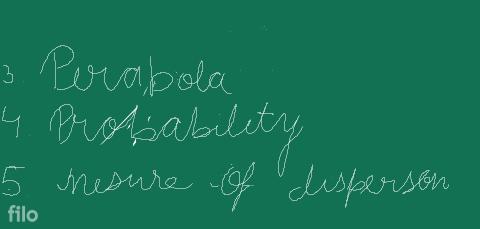 3. Perabola
4. Probability
5 mesure of disperson
filo